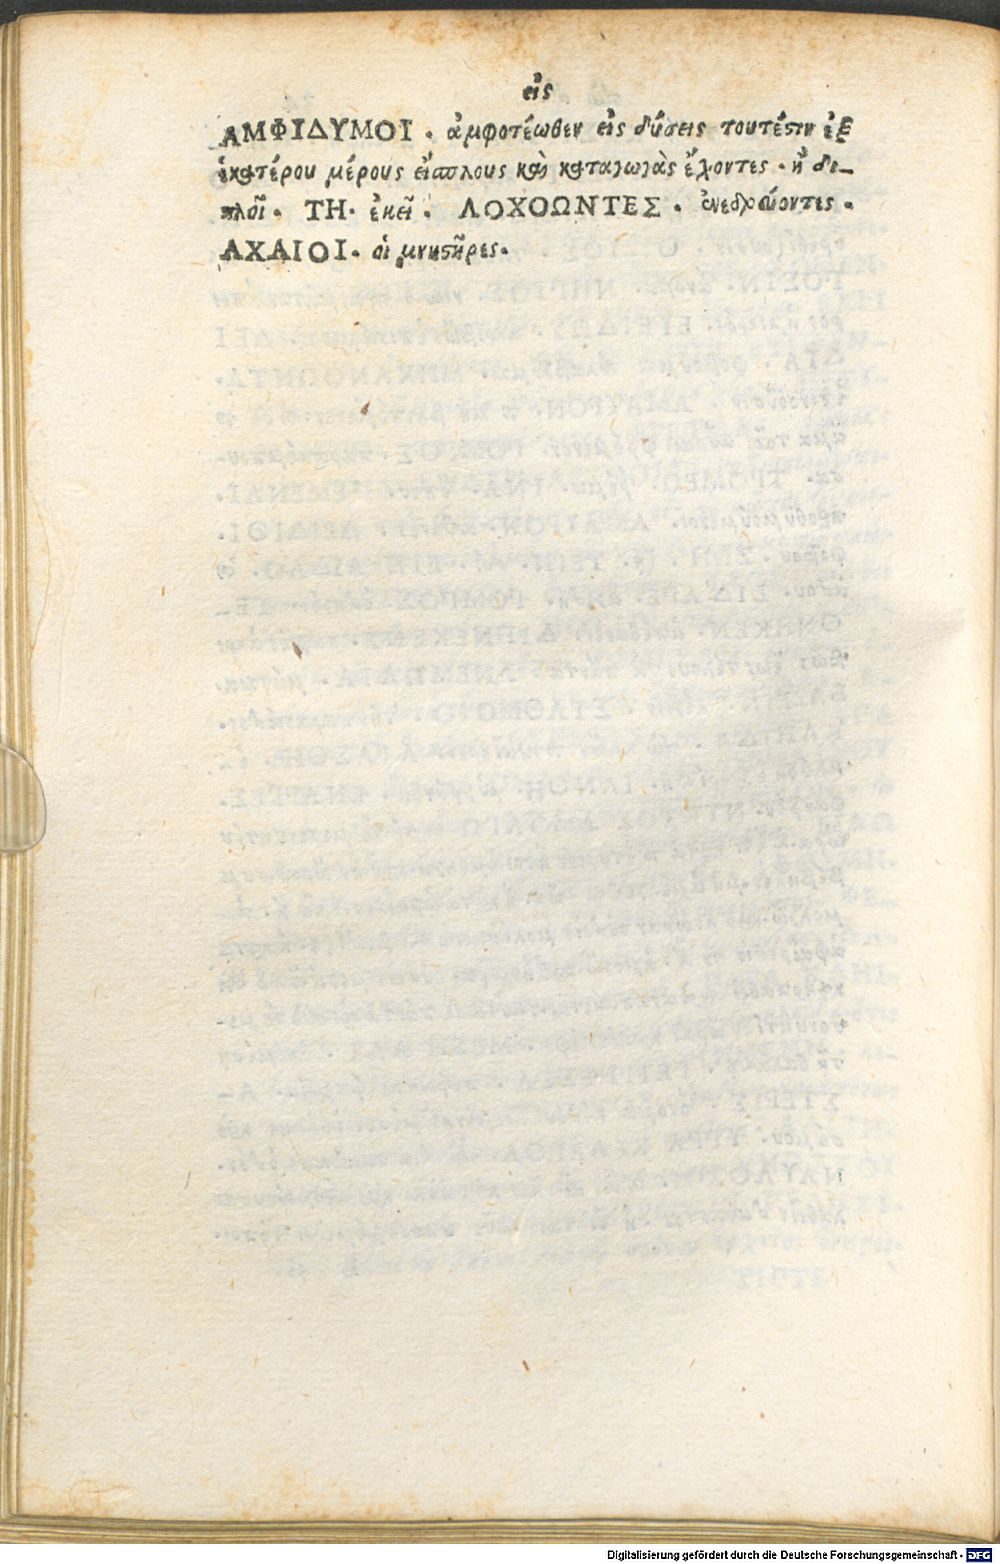 εἰς
ΑΜΦΙΔΥΜΟΙ. ἀμφοτέρωθεν εἰς δύσεις τουτέστιν ἐξ
ἑκατέρου μέρους εἴσπλους καὶ καταγωγὰς ἔχοντες. ἢ δι–
πλοῖ. ΤΗ. ἐκεῖ. ΛΟΧΟΩΝΤΕΣ. ἐνεδρεύοντες.
ΑΧΑΙΟΙ. οἱ μνηστῆρες.
Digitalisierung gefördert durch die Deutsche Forschungsgemeinschaft - DFG